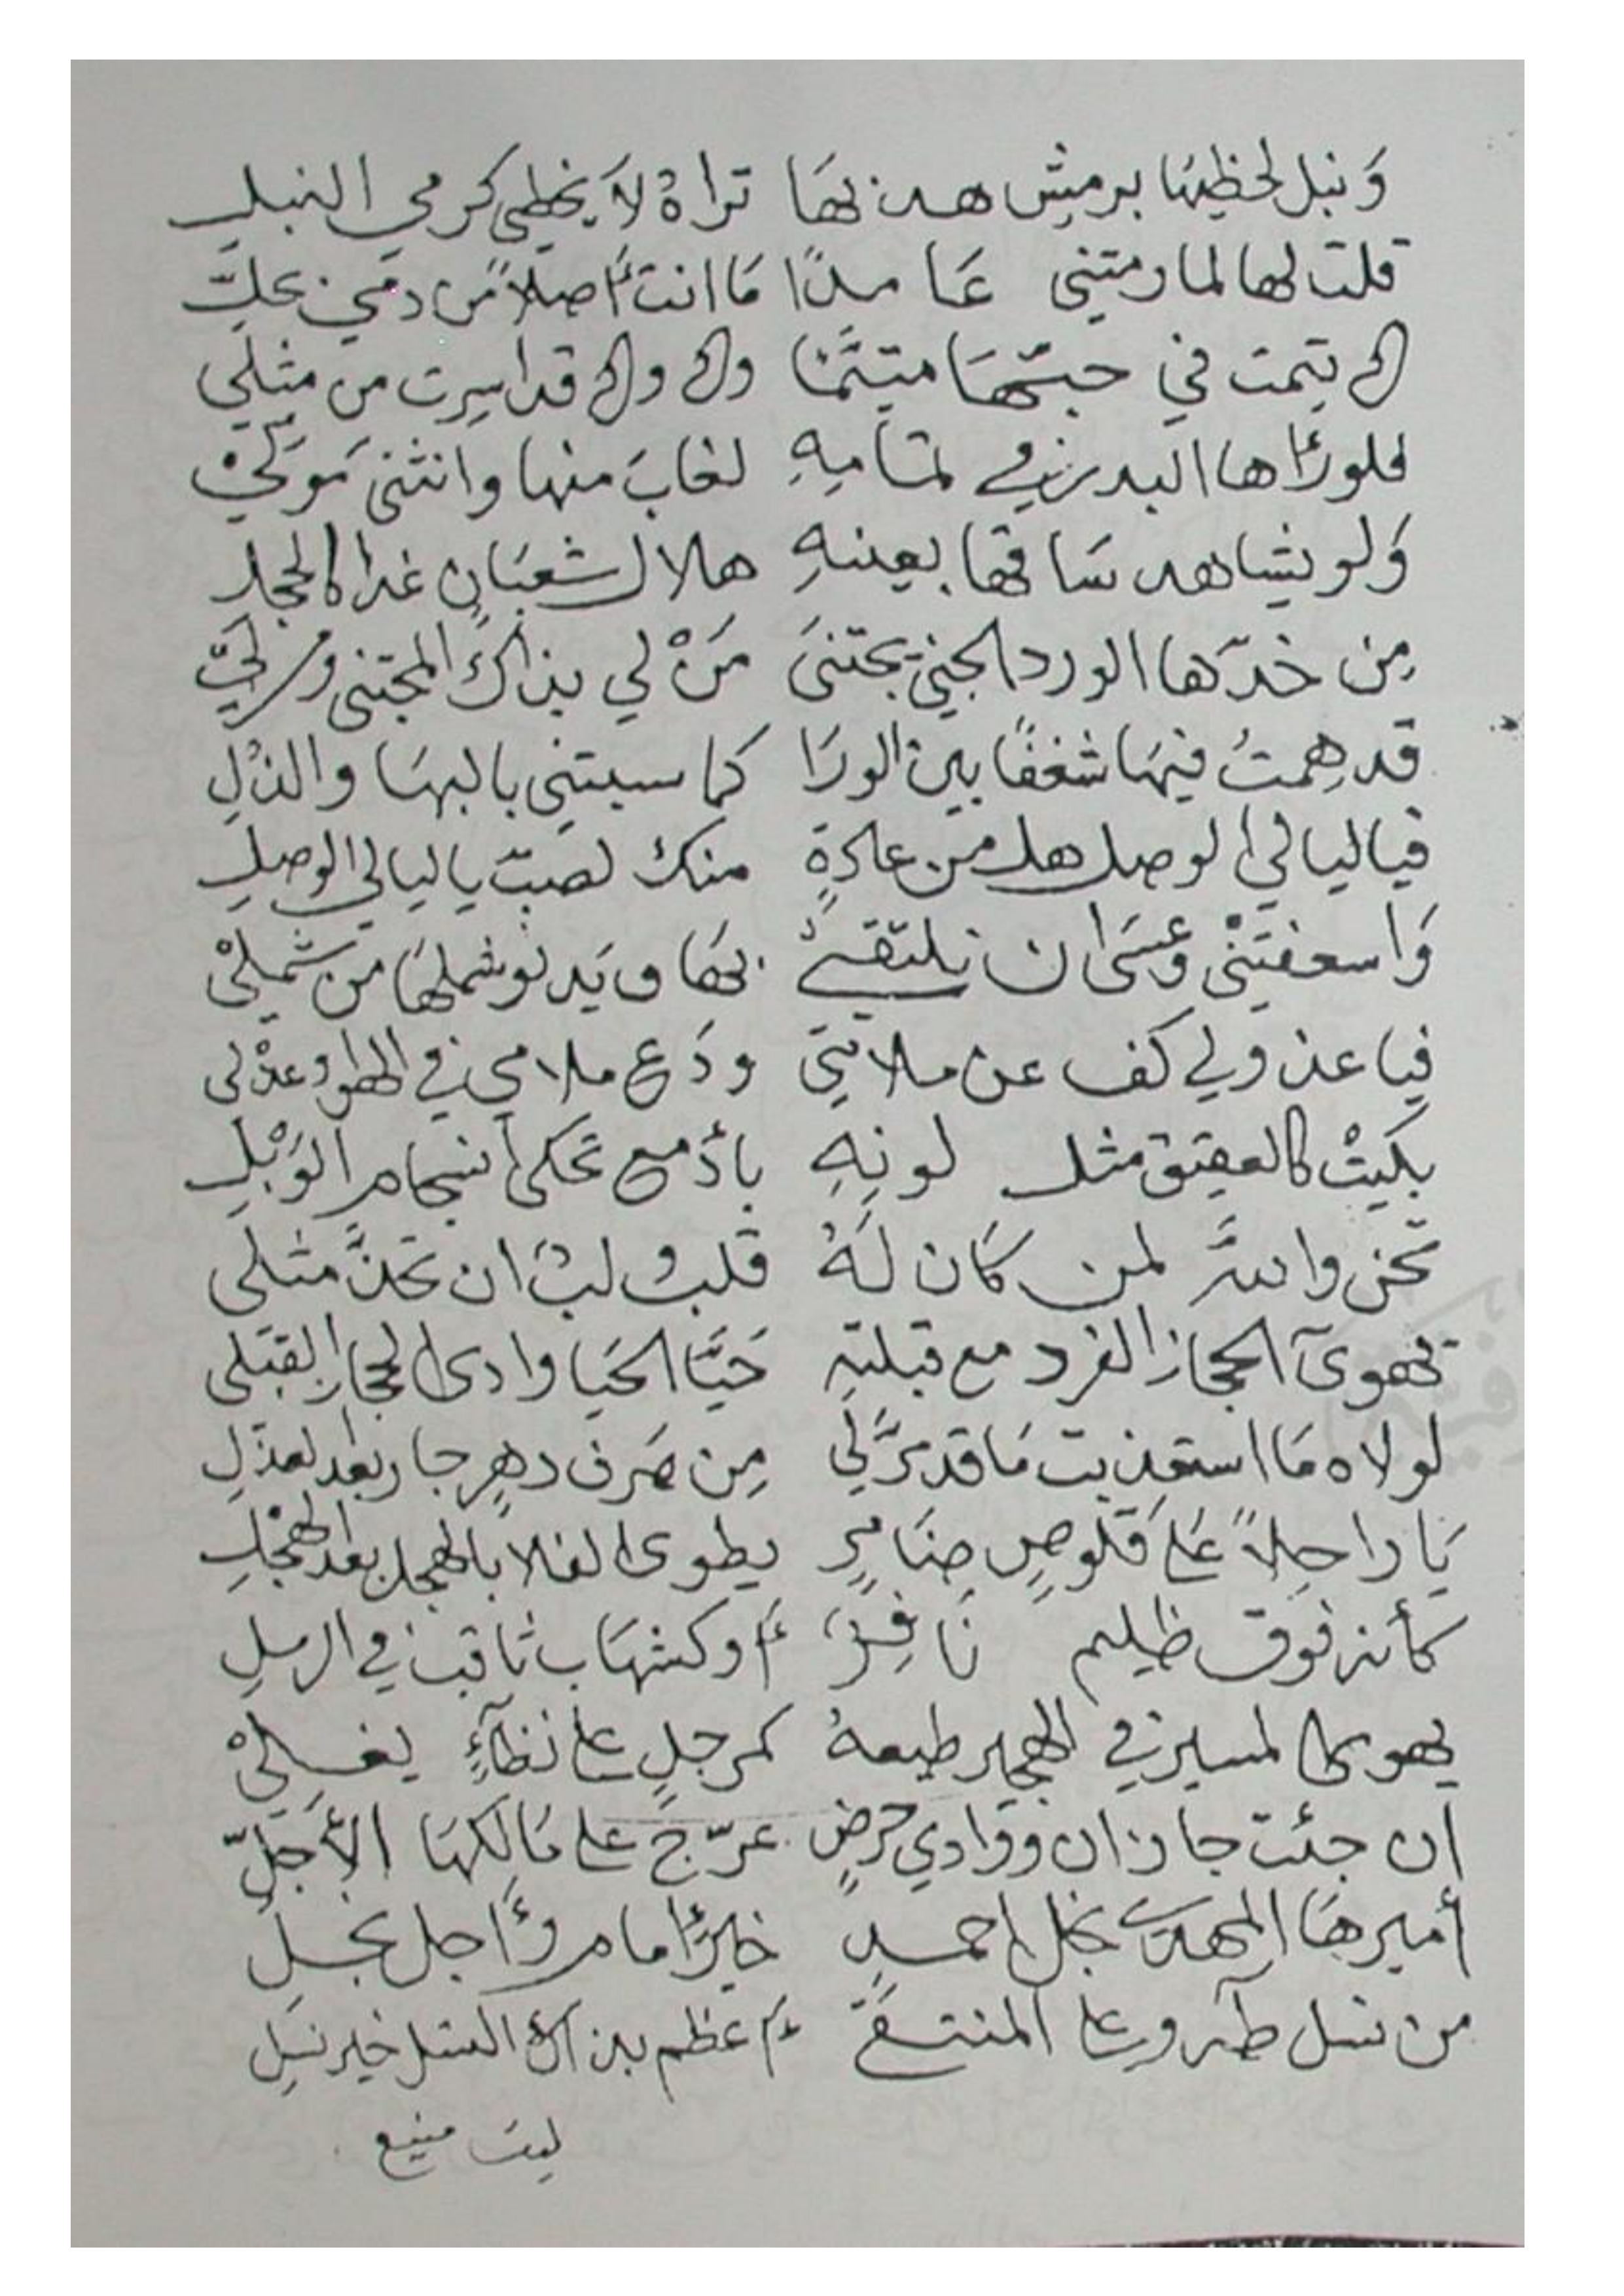 وَنبل لحظِهَا برمشِ هدبهَا تراهُ لاَ يخطي كرمي النبلِ
قلت لها لما رمتني عَامدًا مَا انت أصلاً من دمي بحلّ
كم تيمت في حبّهَا متيَّمًا وكم وكم قد اسرت من مثلي
فلو رءاها البدر في تمَامِهِ لغابَ منها وانثنى مَوَلّيْ
وَلو يشاهد سَاقها بعينهِ هلال شعبَانٍ غدا كالحجل
مِن خدّها الورد الجني يجتنىَ مَنْ لي بذاكَ المجتنى ومن ليَّ
قد هِمتُ فيهَا شغفًا بين الورَا كما سبتني بالبهَا والدَّلِ
فيا ليالي الوصل هل من عَادةٍ منك لصبّ يا ليالي الوصلِ
وَاسعفينيْ وعسَى ان نلتقيْ بهَا ويَدنو شملهَا من شمليْ
فيا عذولي كف عن ملامتي ودَع ملامي في الهوا وعذلى
بكيتُ كالعقيق مثل لونِهِ بأدمع تحكى انسجام الوَبْلِ
تحن والله لمن كَان لَهُ قلبٌ لبٌ ان تحنَّ مثلى
تهوىَ الحجاز الفرد مع قبلتهِ حَيَّا الحَيا وادى الحجاز القبَلى
لولاه مَا استعذبت مَا قد مرَّ لي مِن صَرف دهرٍ جار بعد لعدلِ
يَا راحِلاً عَلى قلوصٍ ضَامرٍ يطوى الفلا بالهجل بعد الهجْلِ
كأنه فوق ظليم نَافِرٌ أو كشهَاب ثاقب في الرملِ
يهوى المسير في الهجير طبعهُ كمرجلٍ على لظاءٍ يغليْ
ان جئت جازان ووادي حرضٍ عرّج على مَالكهَا الأجَلِّ
أميرهَا المهدى نجل احمدٍ خير امام وأجل نجلِ
من نسل طه وعلي المنتقىَ أعظم بذاك النسل خير نسلِ
ليث منيع